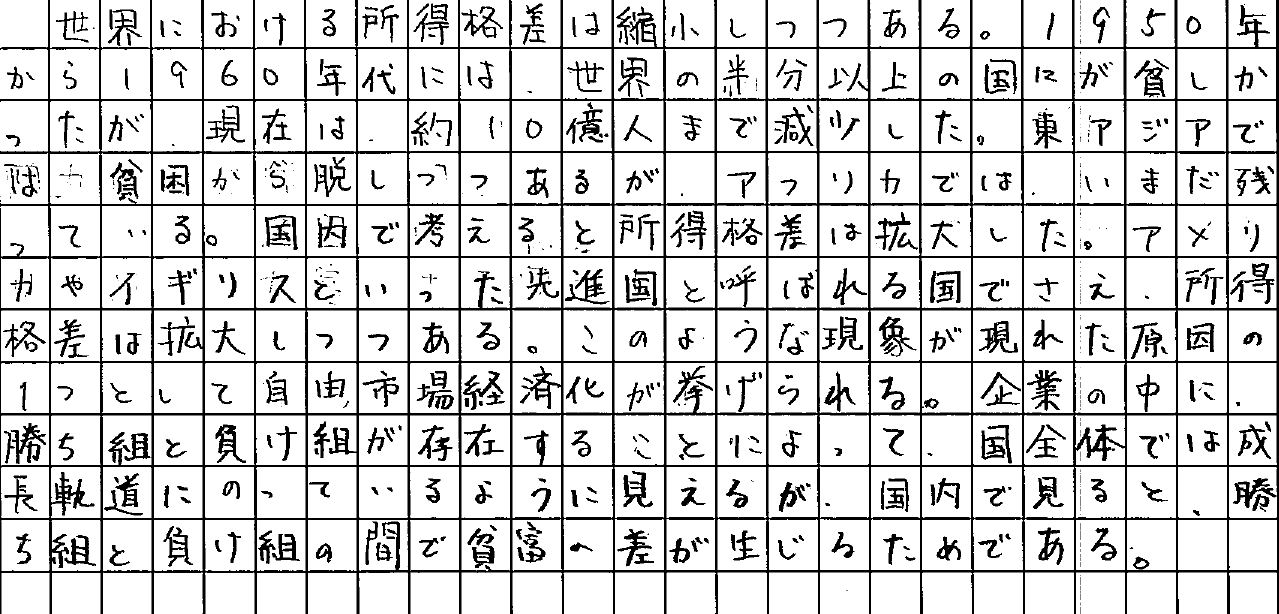 世界における所得格差は縮小しつつある。1950年
から1960年代には、世界の半分以上の国にが貧しか
ったが、現在は、約10億人まで減少した。東アジアで
は貧困から脱しつつあるが、アフリカでは、いまだ残
っている。国内で考えると所得格差は拡大した。アメリ
カやイギリスといった先進国と呼ばれる国でさえ、所得
格差は拡大しつつある。このような現象が現れた原因の
1つとして自由市場経済化が挙げられる。企業の中に、
勝ち組と負け組が存在することによって、国全体では成
長軌道にのっているように見えるが、国内で見ると、勝
ち組と負け組の間で貧富への差が生じるためである。